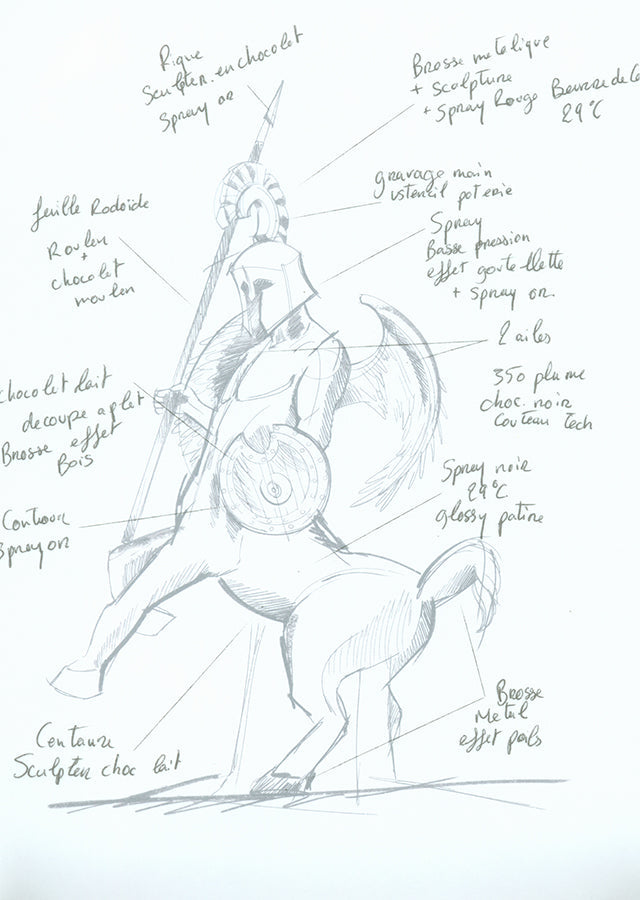 Pique
Sculpter en chocolat
Spray or
Brosse metalique
+ sculpture
+ Spray Rouge Beurre de
29°C
gravage main
ustencil poterie
Spray
Basse pression
effet goutellette
+ spray or.
feuille Rodoïde
Roulen
+
chocolat
moulen
2 ailes
350 plume
choc. noir
Couteau tech
chocolat lait
decoupe a plat
Brosse effet
Bois
Spray noir
29°C
glossy patine
Contour
Spray or
Brosse
Metal
effet poils
Centaure
Sculpter choc lait